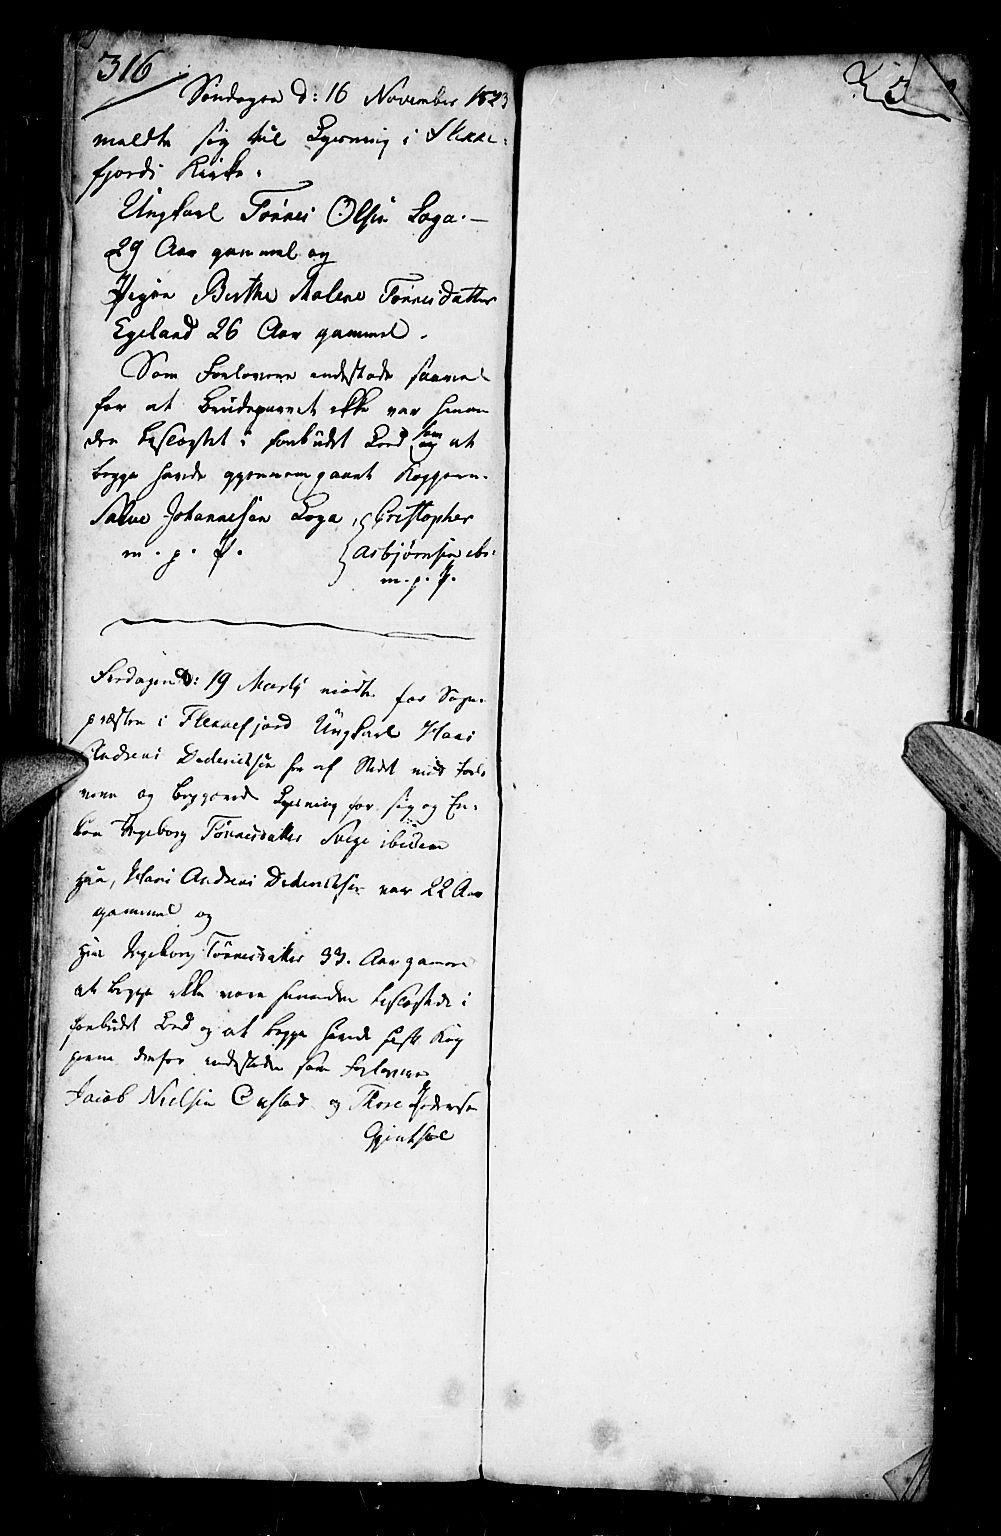 316
Søndagen d: 16 November 1823
meldte sig til Lysning i Flekke-
fjords Kirke.
Ungkarl Tønnes Olsen Loga.—
29 Aar gammel og
Pigen Berthe Malene Tønnesdatter
Egeland 26 Aar gammel.
Som Forlovere indestode saavel
for at Brudeparret ikke var hinan
den beslægtet i forbudet Led som og at
begge havde gjennemgaaet Kopperne.
Salve Johannesen Loga, Cristopher
m. p. P. Asbjørnsen ibi:
m. p. P.
d: 19 Martij mødte for Sogne-
præsten i Flekkefjord Ungkarl Hans
Andreas Dederichsen her af Stedet med Forlo
vere og begjerede Lysning for sig og En-
ken Ingeborg Tønnesdatter Svege ibidem
Hans Andreas Dederichsen var 22 Aar
gammel og
Ingeborg Tønnesdatter 33. Aar gammel
at begge ikke vare hinanden beslægtede i
forbudet Led og at begge havde havt Kop
perne derfor indestode som Forlovere
Jacob Nielsen og Thore Pedersen